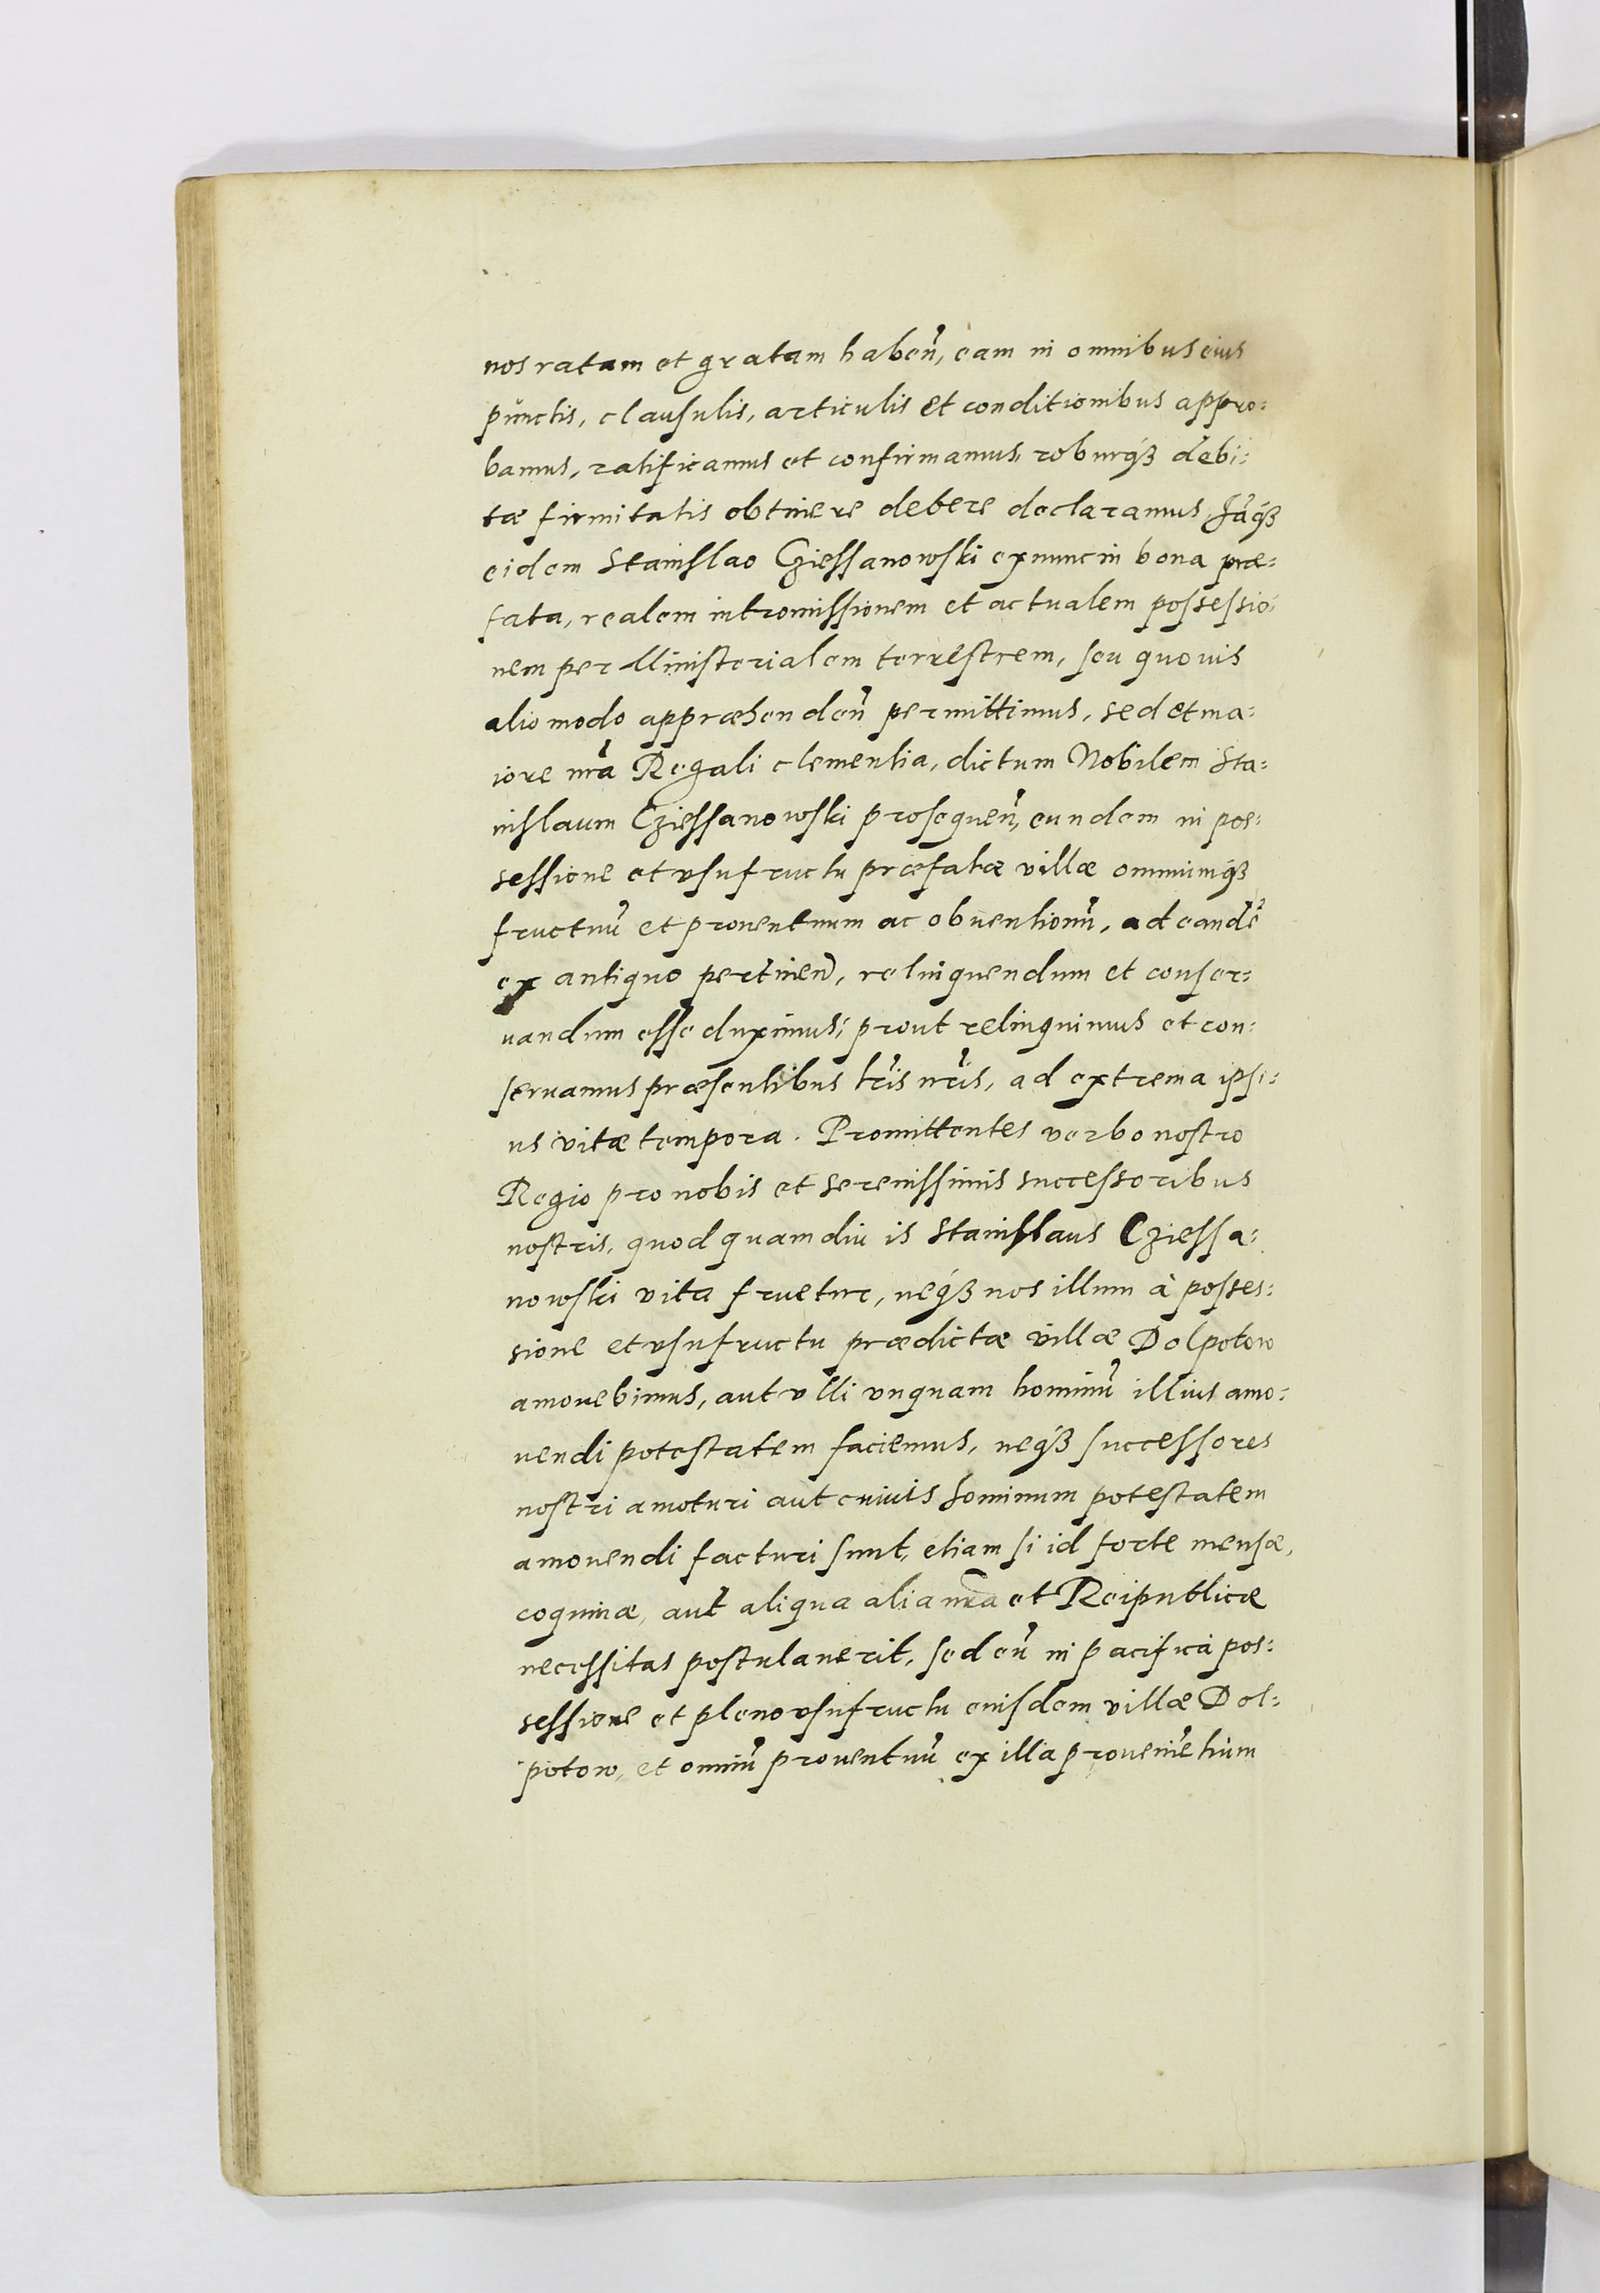 nos ratam et gratam haben̄, eam in omnibus eius
punctis, clausulis, articulis et conditionibus appro:
bamus, ratificamus et confirmamus, roburq́ꝫ debi:
tæ firmitatis obtinere debere declaramus,
eidem Stanislao Cziessanowski ex nunc in bona præ:
fata, realem intromissionem et actualem possessio:
nem per Ministerialem terrestrem, seu quovis
alio modo appræhenden̄ permittimus, sed et ma:
iore nr̄a Regali clementia, dictum Nobilem Sta:
nislaum Cziessanowski prosequen̄, eundem in pos:
sessione et vsufructu præfatæ villæ omniumq́ꝫ
fructuū et prouentuum ac obuentionū, ad eandē
ex antiquo pertinen̄, relinquendum et conser:
uandum esse duximus; prout relinquimus et con:
seruamus præsentibus lr̄is nr̄is, ad extrema ipsi:
us vitæ tempora. Promittentes verbo nostro
Regio pro nobis et serenissimis successoribus
nostris, quod quamdiu is Stanislaus Cziessa:
nowski vita fruetur, neq́ꝫ nos illum à posses:
sione et vsufructu prædictæ villæ Dolpotow
amouebimus, aut vlli vnquam hominū illius amo:
uendi potestatem faciemus, neq́ꝫ successores
nostri amoturi aut cuiuis hominum potestatem
amouendi facturi sunt, etiam si id forte mensæ,
coquinæ, aut aliqua alia nr̄a et Reipublicæ
necessitas postulauerit, sed eū in pacifica pos:
sessione et pleno vsufructu eiusdem villæ Dol:
potow, et omniū prouentuū ex illa prouenientium